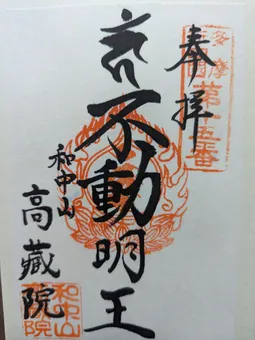 奉拝
多摩
第十五番
不動明王
和中山
高蔵院
和中山